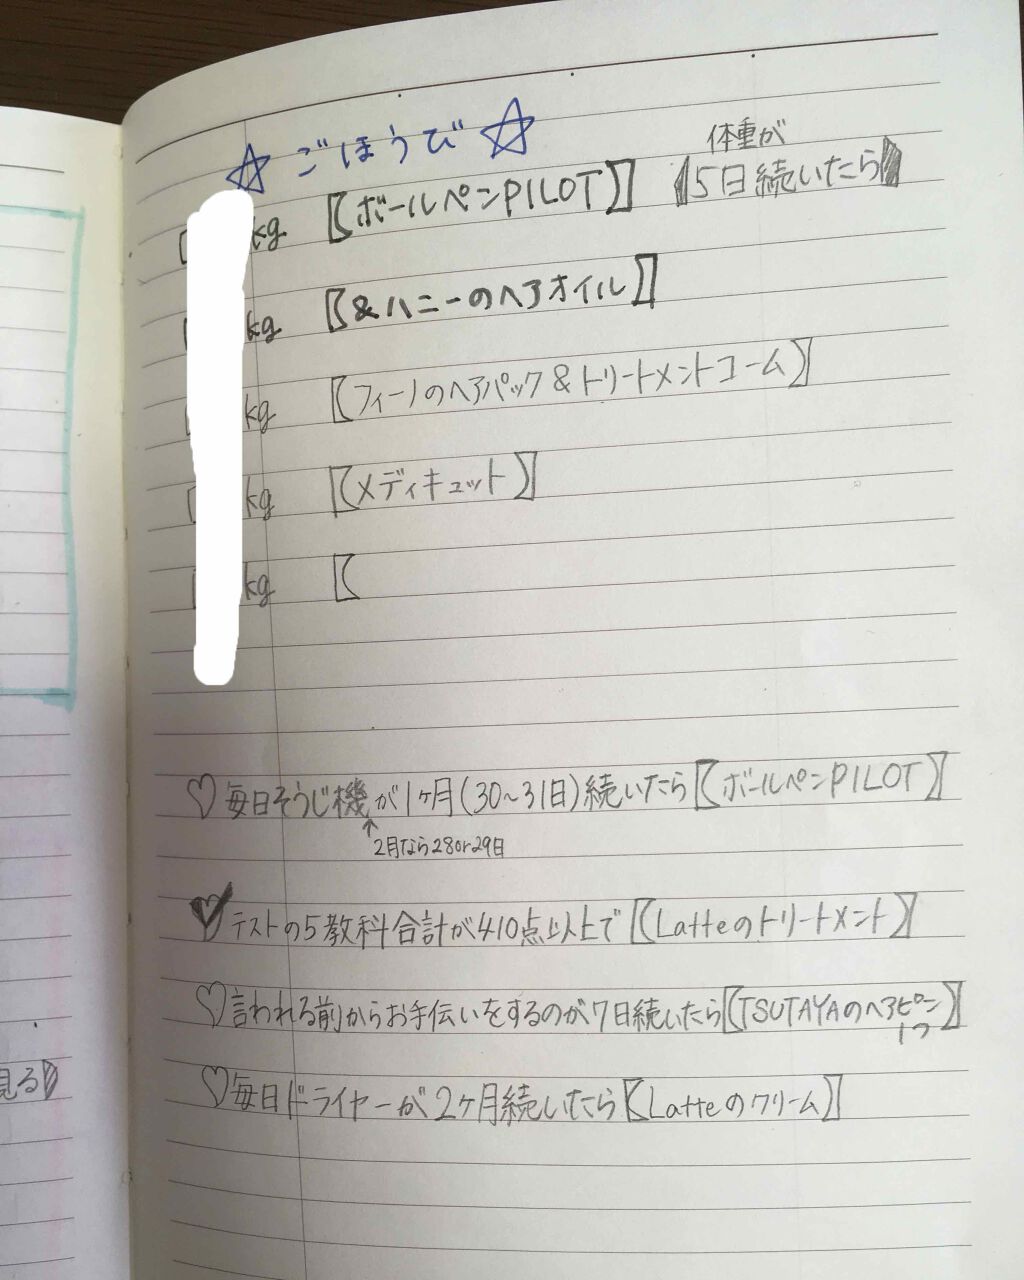 ☆ごほうび☆
体重が
kg 【ボールペンPILOT】 【5日続いたら】
kg 【&ハニーのヘアオイル】
kg 【フィーノのヘアパック&トリートメントコーム】
kg 【メディキュット】
kg 【
♡毎日そうじ機が1ヶ月(30~31日)続いたら【ボールペンPILOT】
↑
2月なら28or29日
♡テストの5教科合計が410点以上で【Latteのトリートメント】
♡言われる前からお手伝いをするのが7日続いたら【TSUTAYAのヘアピン】
1つ
見る】
♡毎日ドライヤーが2ヶ月続いたら【Latteのクリーム】